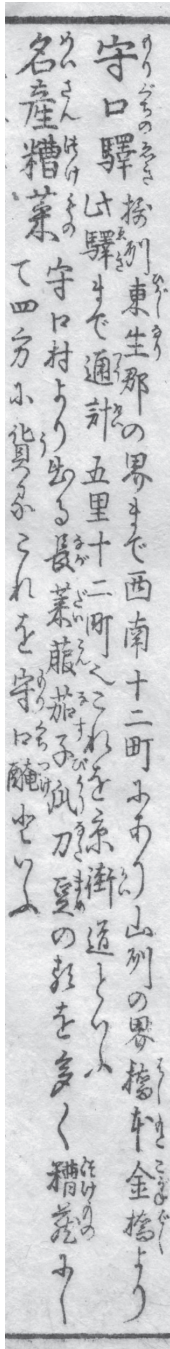 守口驛 摂州東生郡の界まで西南十二町にあり山州の界橋本金橋より
此驛まで通計五里十二町也これを京街道といふ
名産糟菜 守口村より出る長莱菔茄子瓜刀豆の類を多く糟蔵にし
て四方に貨るこれを守口醃といふ